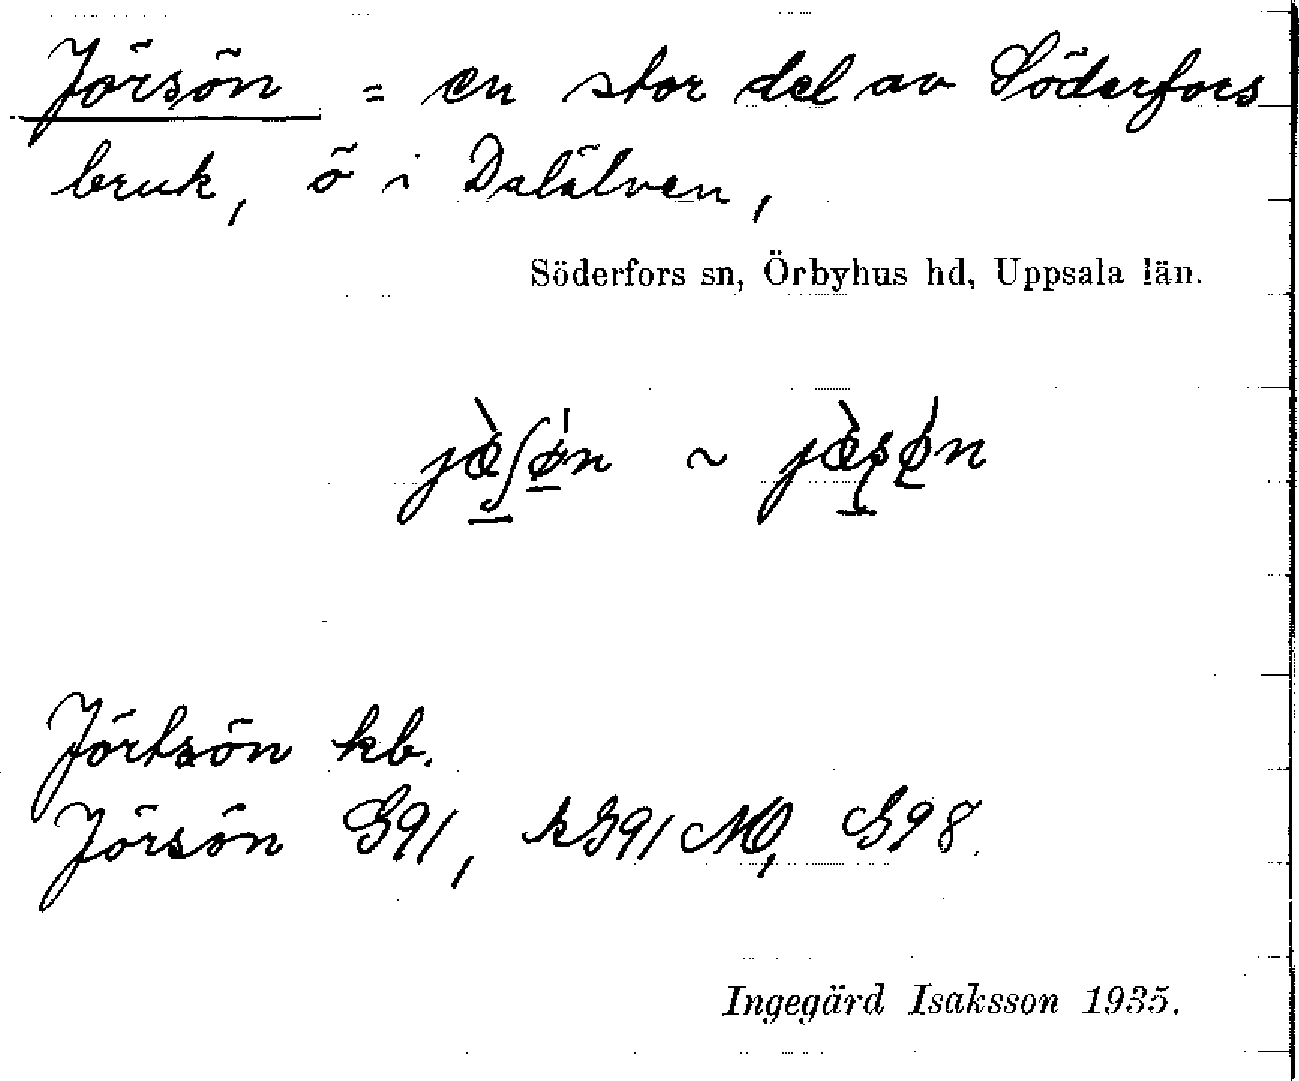 Jörsön = en stor del av Söderfors
bruk, ö i Dalälven,
Söderfors sn, Örbyhus hd, Uppsala län.
Jörtsön kb.
Jörsön G91, kG91 MO, G98.
Ingegärd Isaksson 1935.